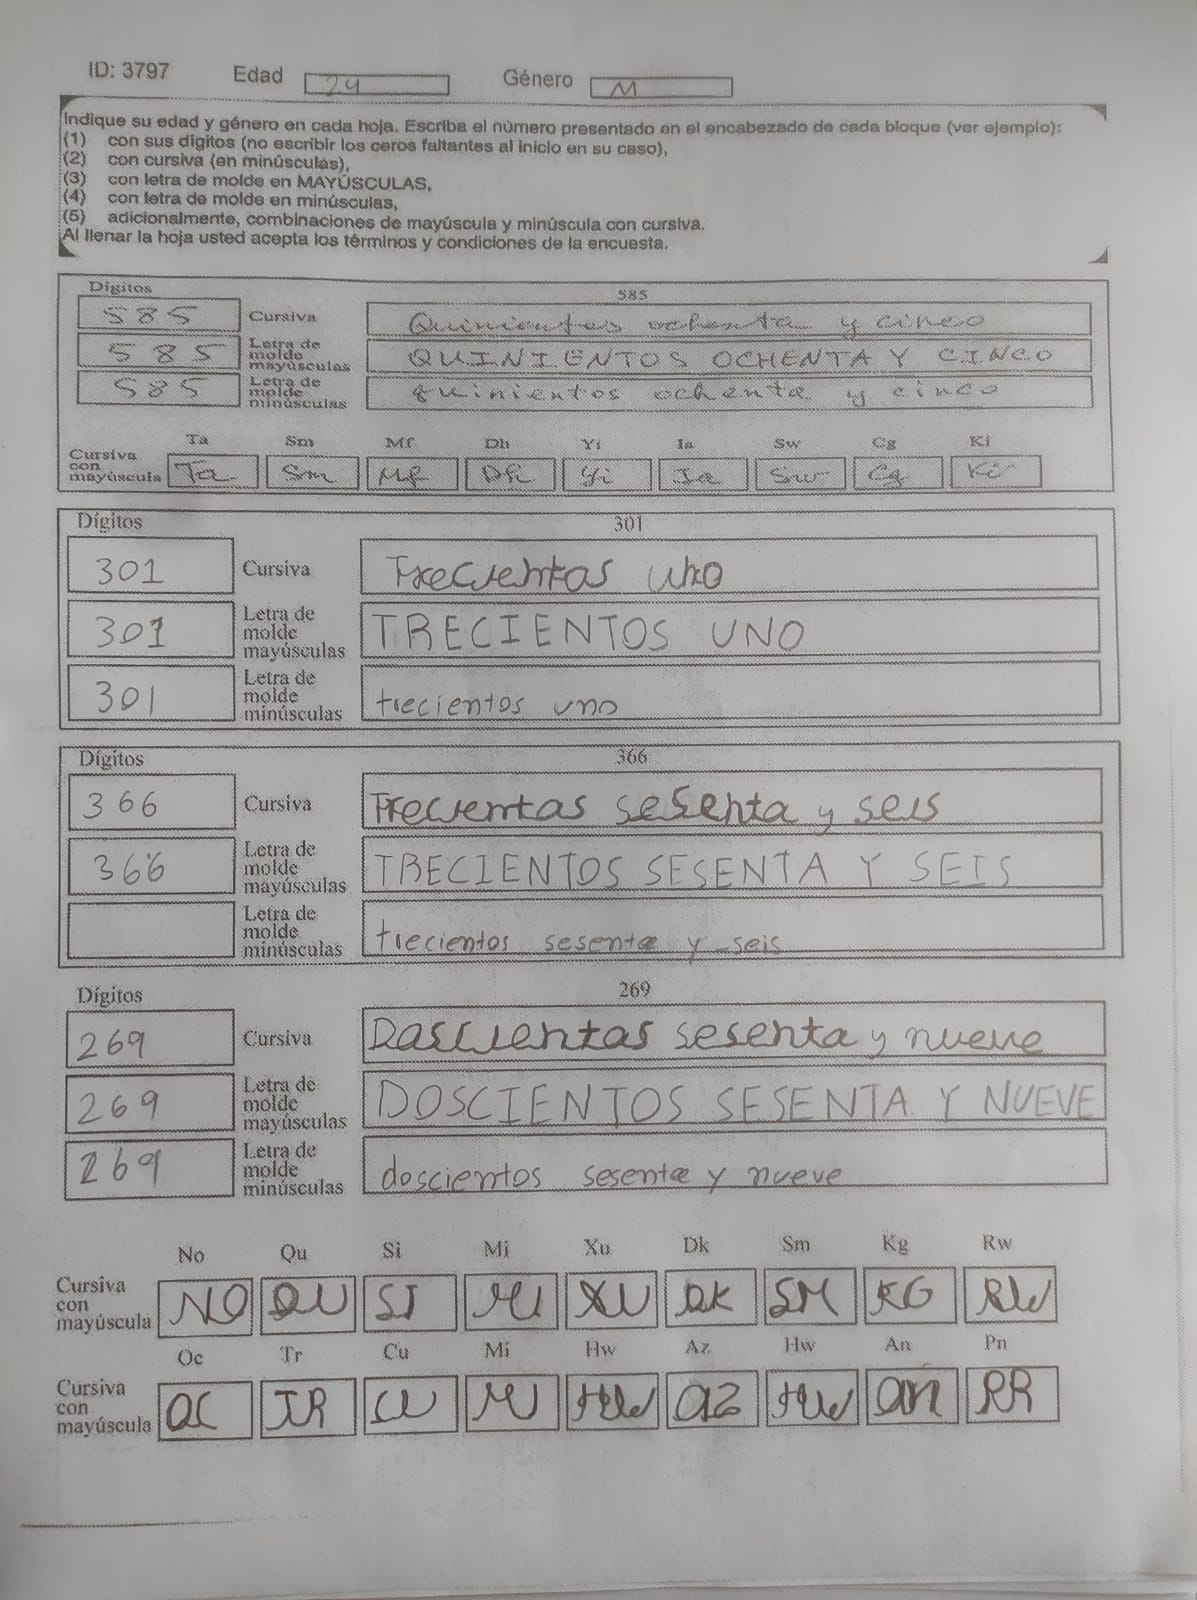 ID: 3797 Edad 24 Género M
Indique su edad y género en cada hoja. Escriba el número presentado en el encabezado de cada bloque (ver ejemplo):
(1) con sus dígitos (no escribir los ceros faltantes al inicio en su caso),
(2) con cursiva (en minúsculas),
(3) con letra de molde en MAYÚSCULAS,
(4) con letra de molde en minúsculas,
(5) adicionalmente, combinaciones de mayúscula y minúscula con cursiva.
Al llenar la hoja usted acepta los términos y condiciones de la encuesta.
Dígitos 585
585 Cursiva Quinientos ochenta y cinco
585 Letra de molde mayúsculas QUINIENTOS OCHENTA Y CINCO
585 Letra de molde minúsculas quinientos ochenta y cinco
Ta Sm Mf Dh Yi Ia Sw Cg Ki
Cursiva con mayúscula Ta Sm Mf Dh Yi Ia Sw Cg Ki
Dígitos 301
301 Cursiva Trecientos uno
301 Letra de molde mayúsculas TRECIENTOS UNO
301 Letra de molde minúsculas trecientos uno
Dígitos 366
366 Cursiva Trecientos sesenta y seis
366 Letra de molde mayúsculas TRECIENTOS SESENTA Y SEIS
Letra de molde minúsculas trecientos sesenta y seis
Dígitos 269
269 Cursiva Doscientos sesenta y nueve
269 Letra de molde mayúsculas DOSCIENTOS SESENTA Y NUEVE
269 Letra de molde minúsculas doscientos sesenta y nueve
No Qu Si Mi Xu Dk Sm Kg Rw
Cursiva con mayúscula NO QU SI MI XU DK SM KG RW
Oc Tr Cu Mi Hw Az Hw An Pn
Cursiva con mayúscula OC TR CU MI HW AZ HW AN PR